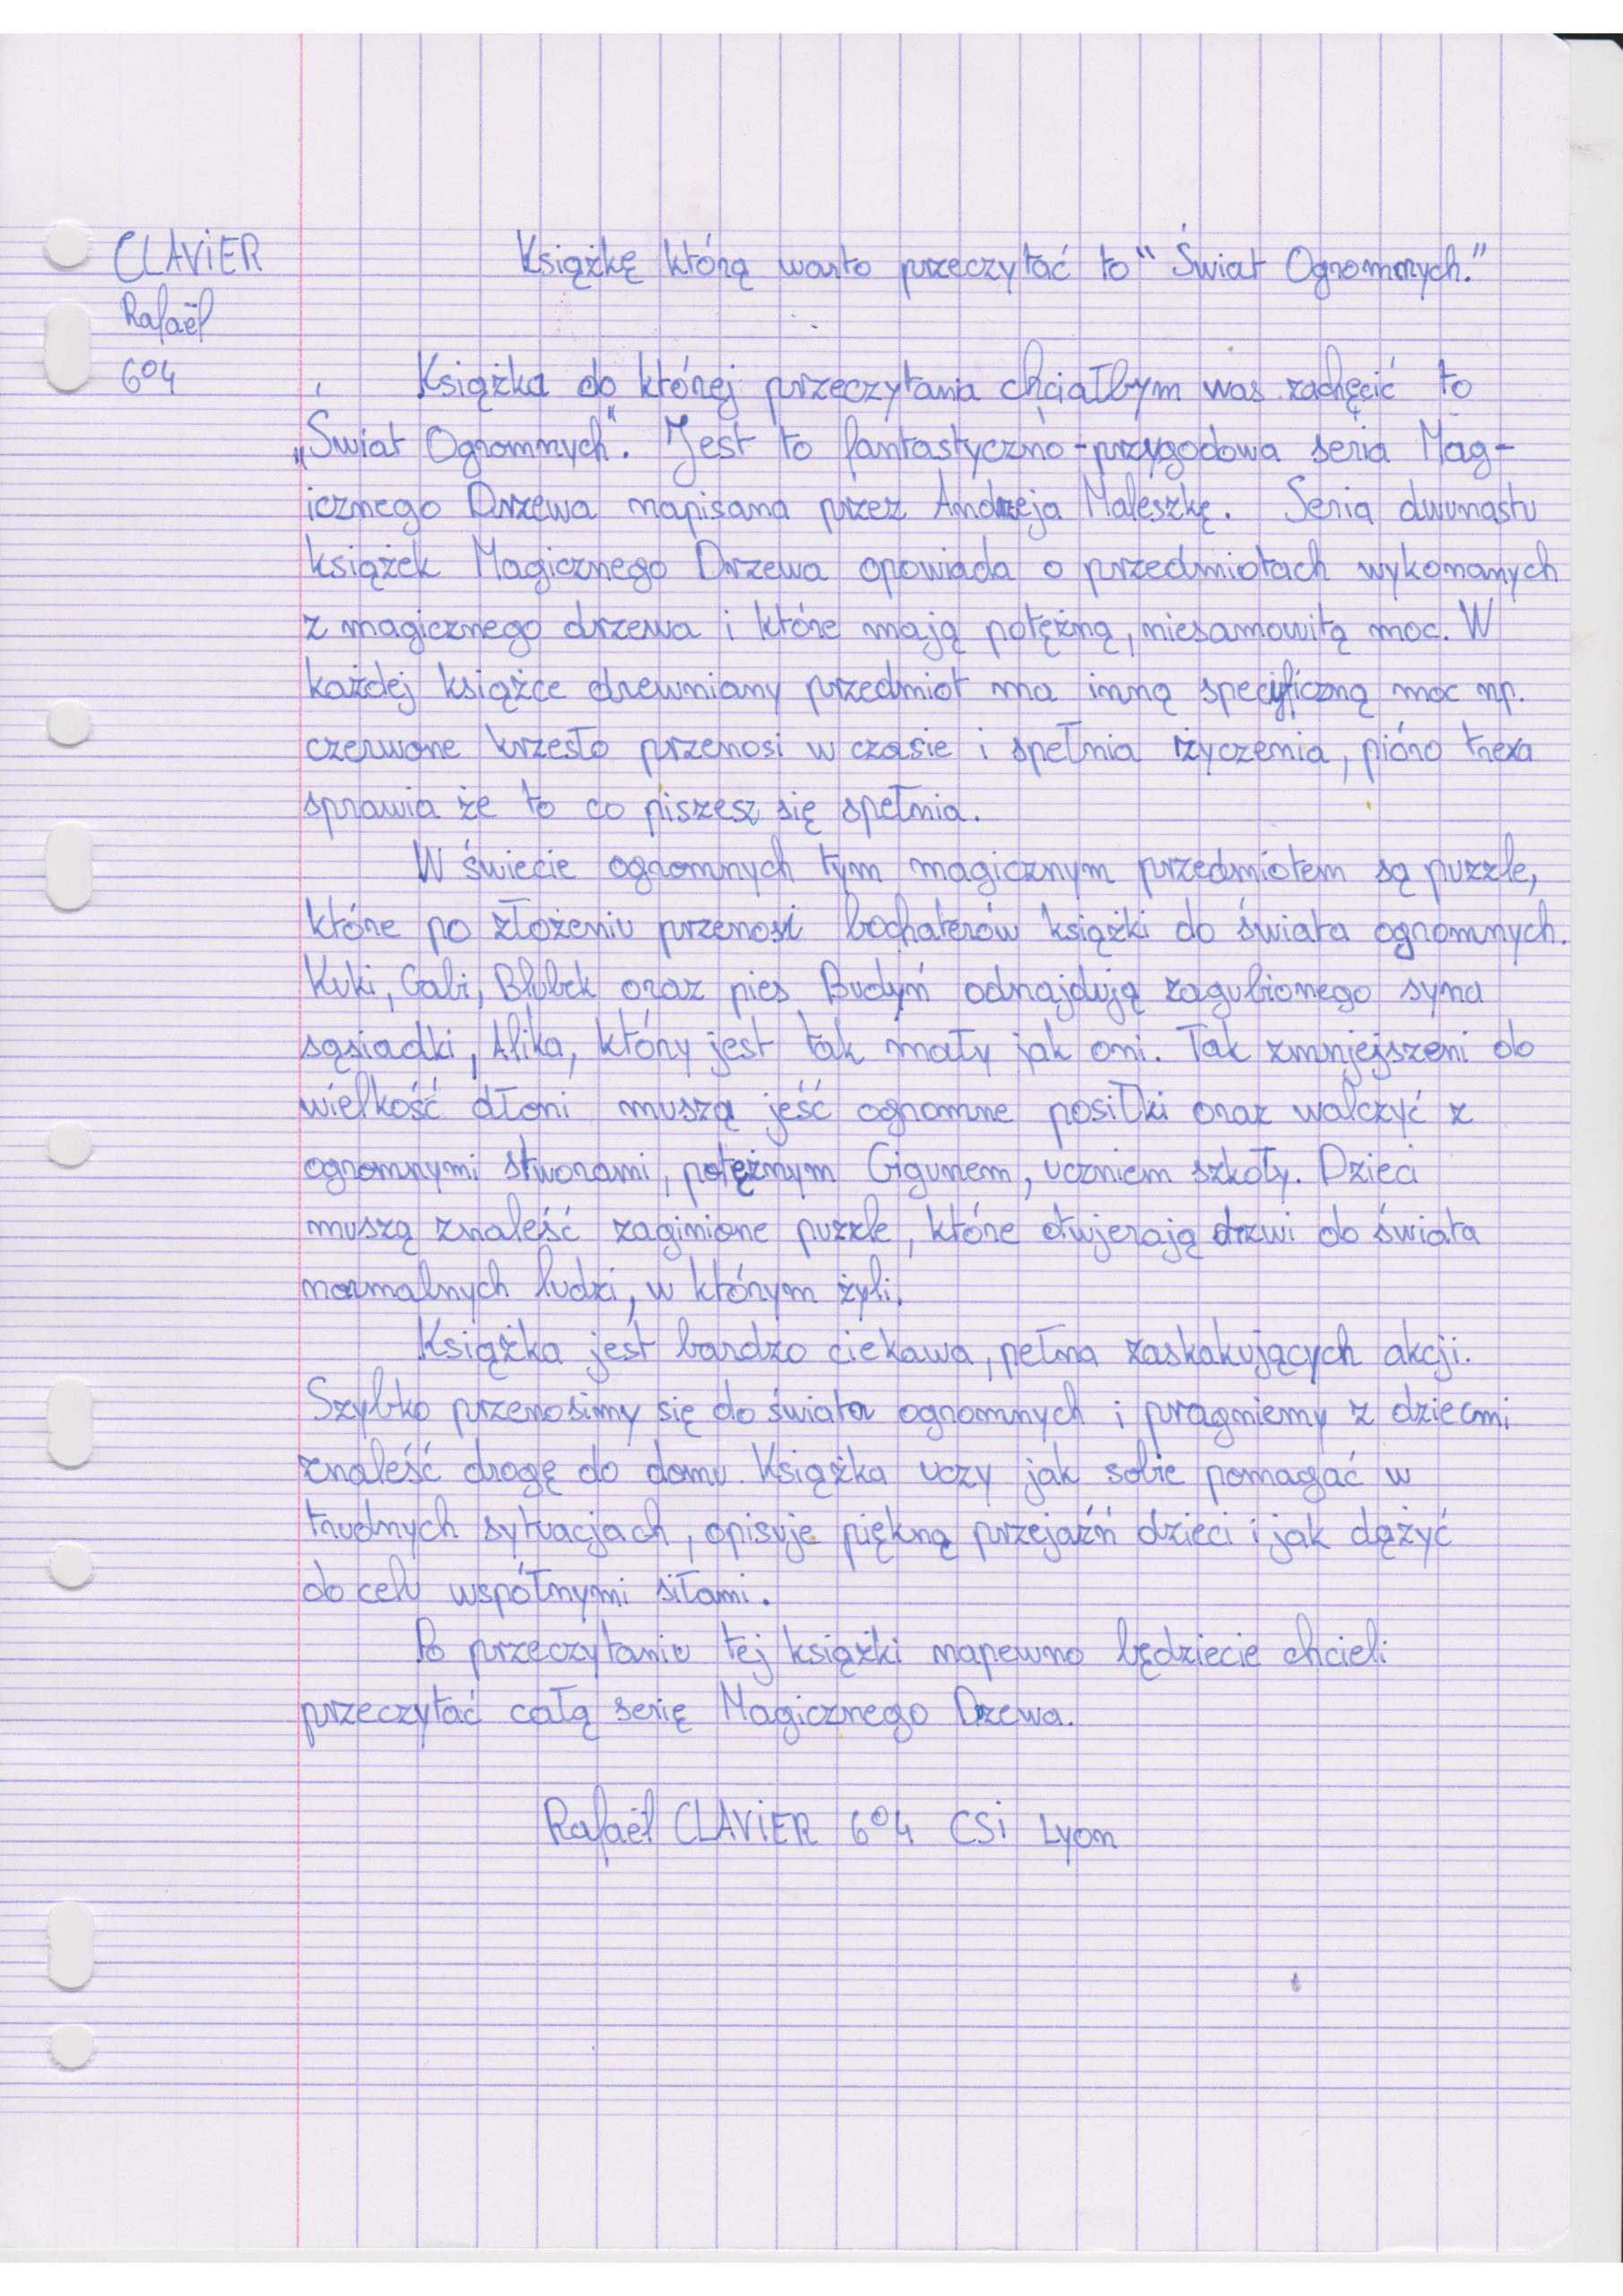 CLAVIER
Rafaël
604
Książkę którą warto przeczytać to "Świat Ogromnych."
Książka do której przeczytania chciałbym was zachęcić to
„Świat Ogromnych". Jest to fantastyczno-przygodowa seria Mag-
icznego Drzewa napisana przez Andrzeja Maleszkę. Seria dwunastu
książek Magicznego Drzewa opowiada o przedmiotach wykonanych
z magicznego drzewa i które mają potężną, niesamowitą moc. W
każdej książce drewniany przedmiot ma inną specyficzną moc np.
czerwone krzesło przenosi w czasie i spełnia życzenia, pióro trexa
sprawia że to co piszesz się spełnia.
W świecie ogromnych tym magicznym przedmiotem są puzzle,
które po złożeniu przenosi bochaterów książki do świata ogromnych.
Kuki, Gabi, Blubek oraz pies Budyń odnajdują zagubionego syna
sąsiadki, Alika, który jest tak mały jak oni. Tak zmniejszeni do
wielkość dłoni muszą jeść ogromne posiłki oraz walczyć z
ogromnymi stworami, potężnym Gigunem, uczniem szkoły. Dzieci
muszą znaleść zaginione puzzle, które otwjerają drzwi do świata
normalnych ludzi, w którym żyli.
Książka jest bardzo ciekawa, pełna zaskakujących akcji.
Szybko przenosimy się do świata ogromnych i pragniemy z dziecmi
znaleść drogę do domu. Książka uczy jak sobie pomagać w
trudnych sytuacjach, opisuje piękną przejaźń dzieci i jak dążyć
do celu wspólnymi siłami.
Po przeczytaniu tej książki napewno będziecie chcieli
przeczytać całą serię Magicznego Drzewa.
Rafaël CLAVIER 604 CSi Lyon